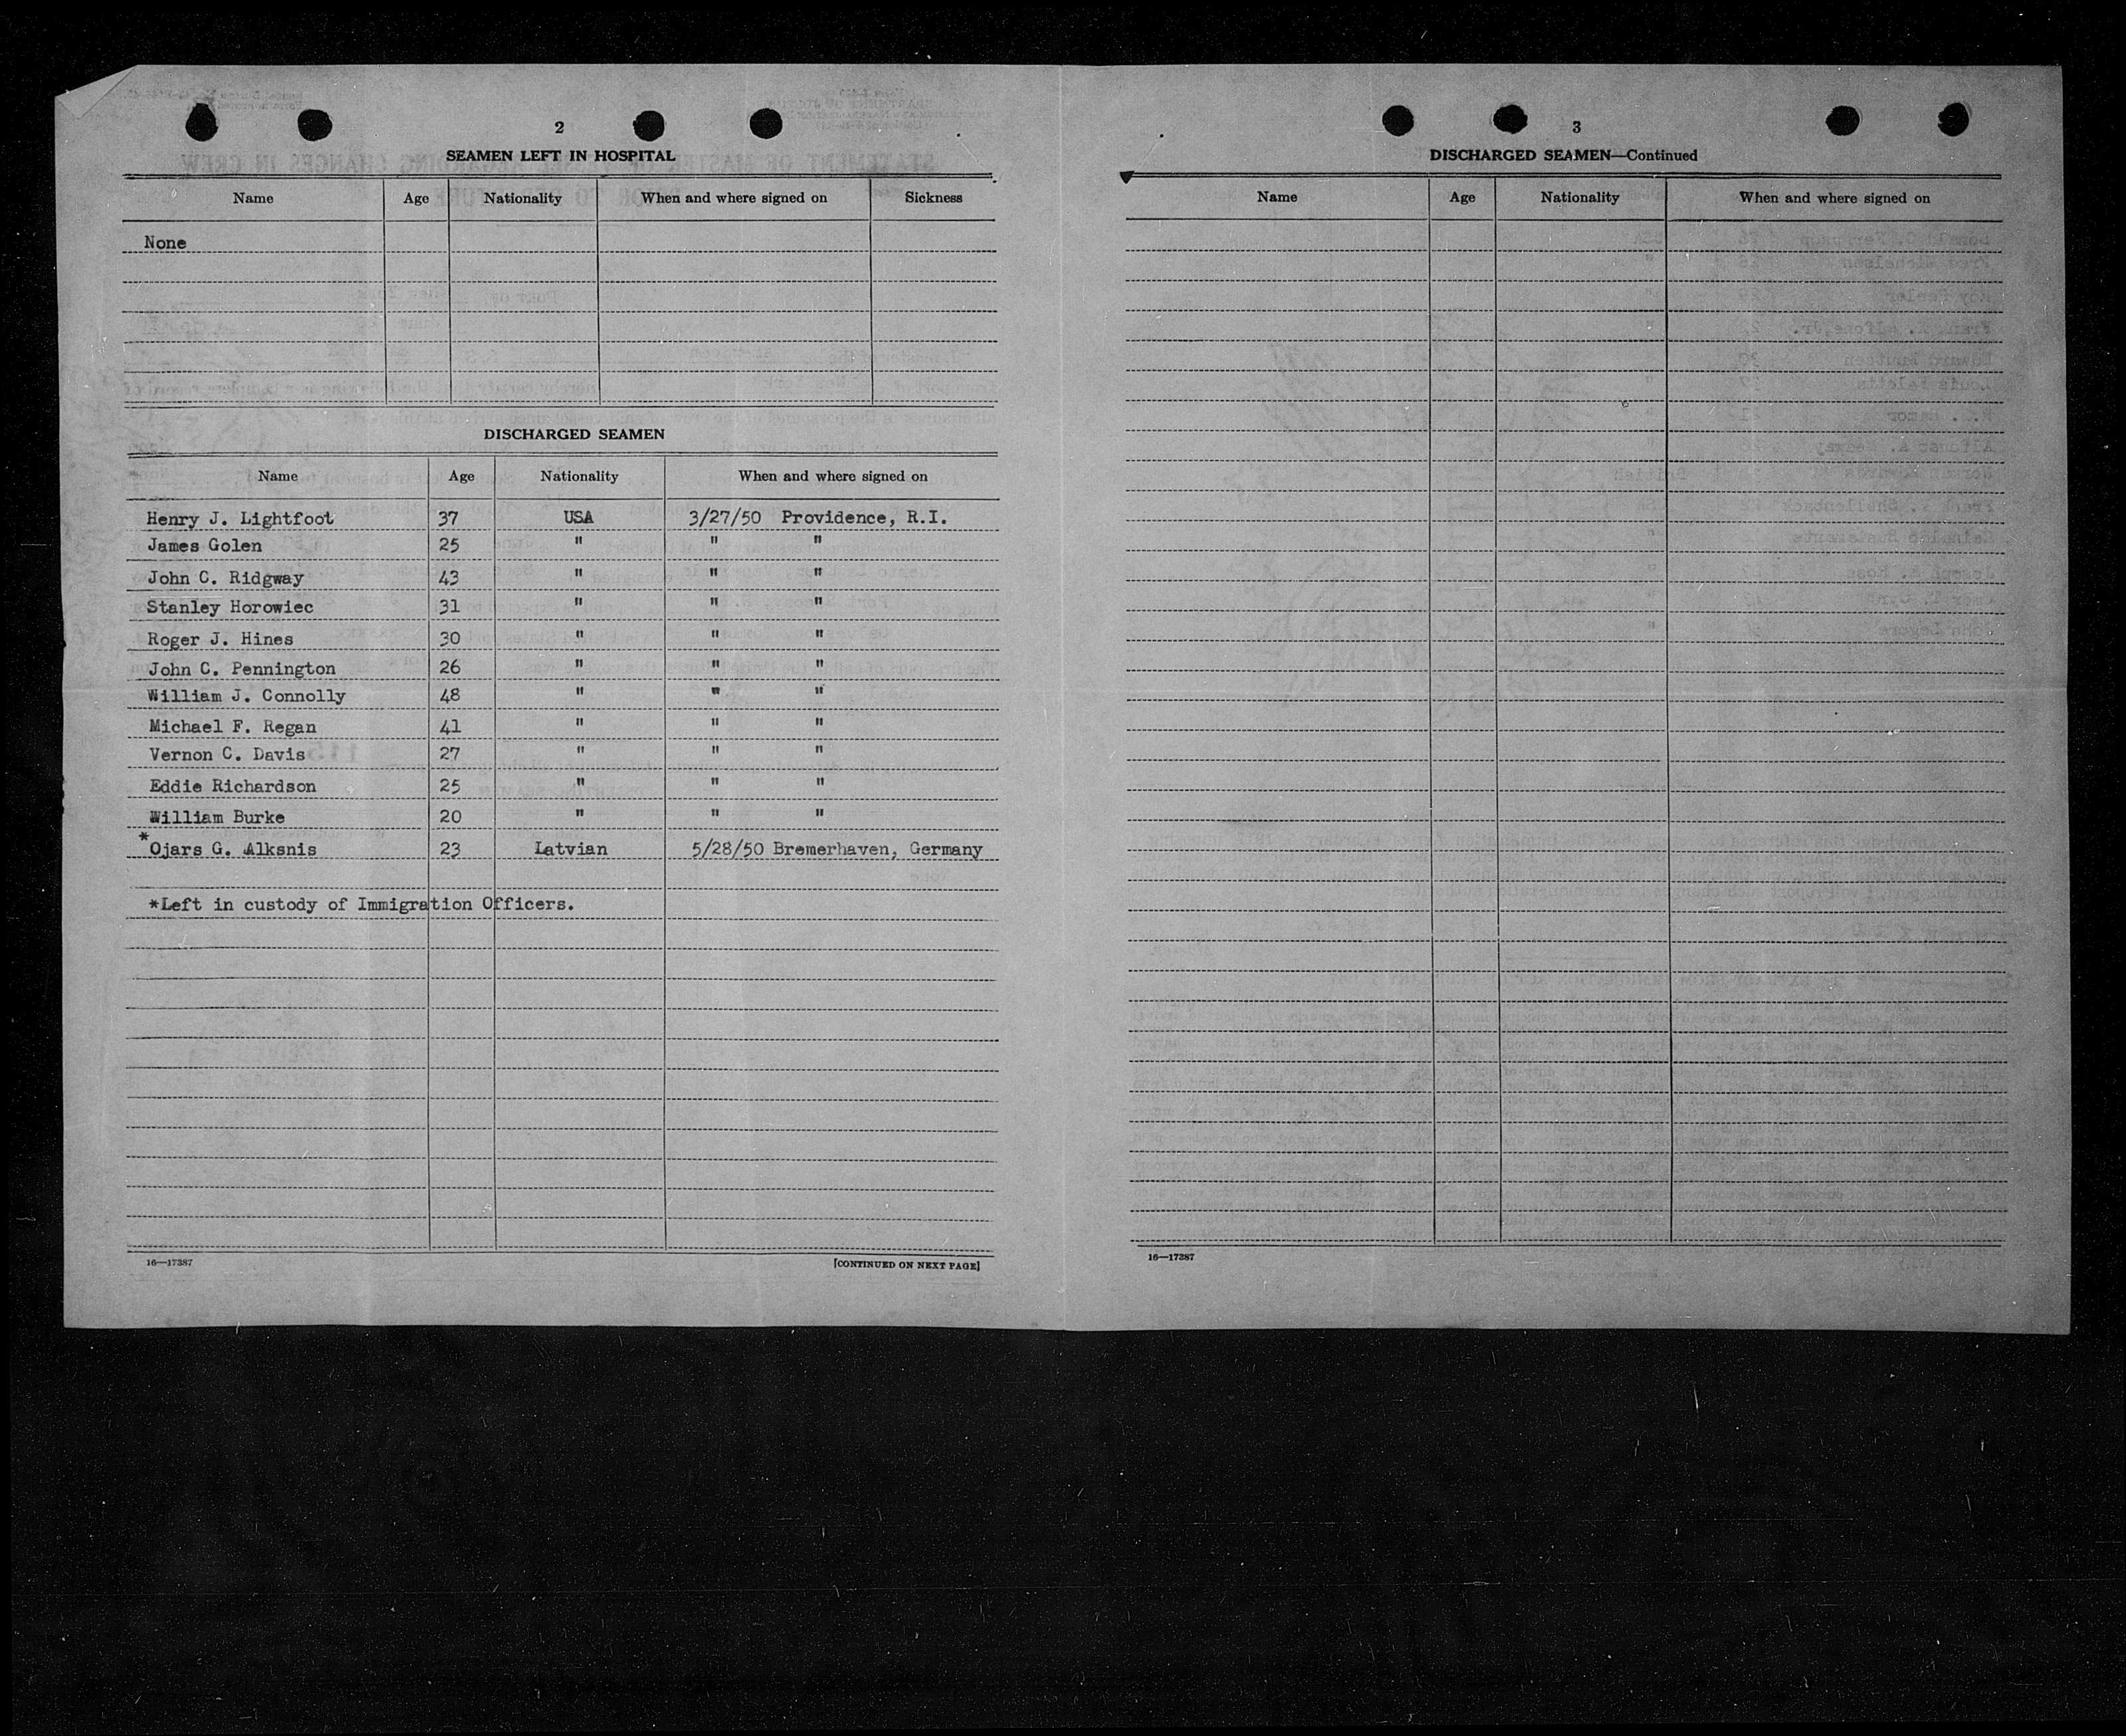 2
SEAMEN LEFT IN HOSPITAL
Name Age Nationality When and where signed on Sickness
None
DISCHARGED SEAMEN
Name Age Nationality When and where signed on
Henry J. Lightfoot 37 USA 3/27/50 Providence, R.I.
James Golen 25 " " "
John C. Ridgway 43 " " "
Stanley Horowiec 31 " " "
Roger J. Hines 30 " " "
John C. Pennington 26 " " "
William J. Connolly 48 " " "
Michael F. Regan 41 " " "
Vernon C. Davis 27 " " "
Eddie Richardson 25 " " "
William Burke 20 " " "
*Ojars G. Alksnis 23 Latvian 5/28/50 Bremerhaven, Germany
*Left in custody of Immigration Officers.
16—17387 [CONTINUED ON NEXT PAGE]
3
DISCHARGED SEAMEN—Continued
Name Age Nationality When and where signed on
16—17387